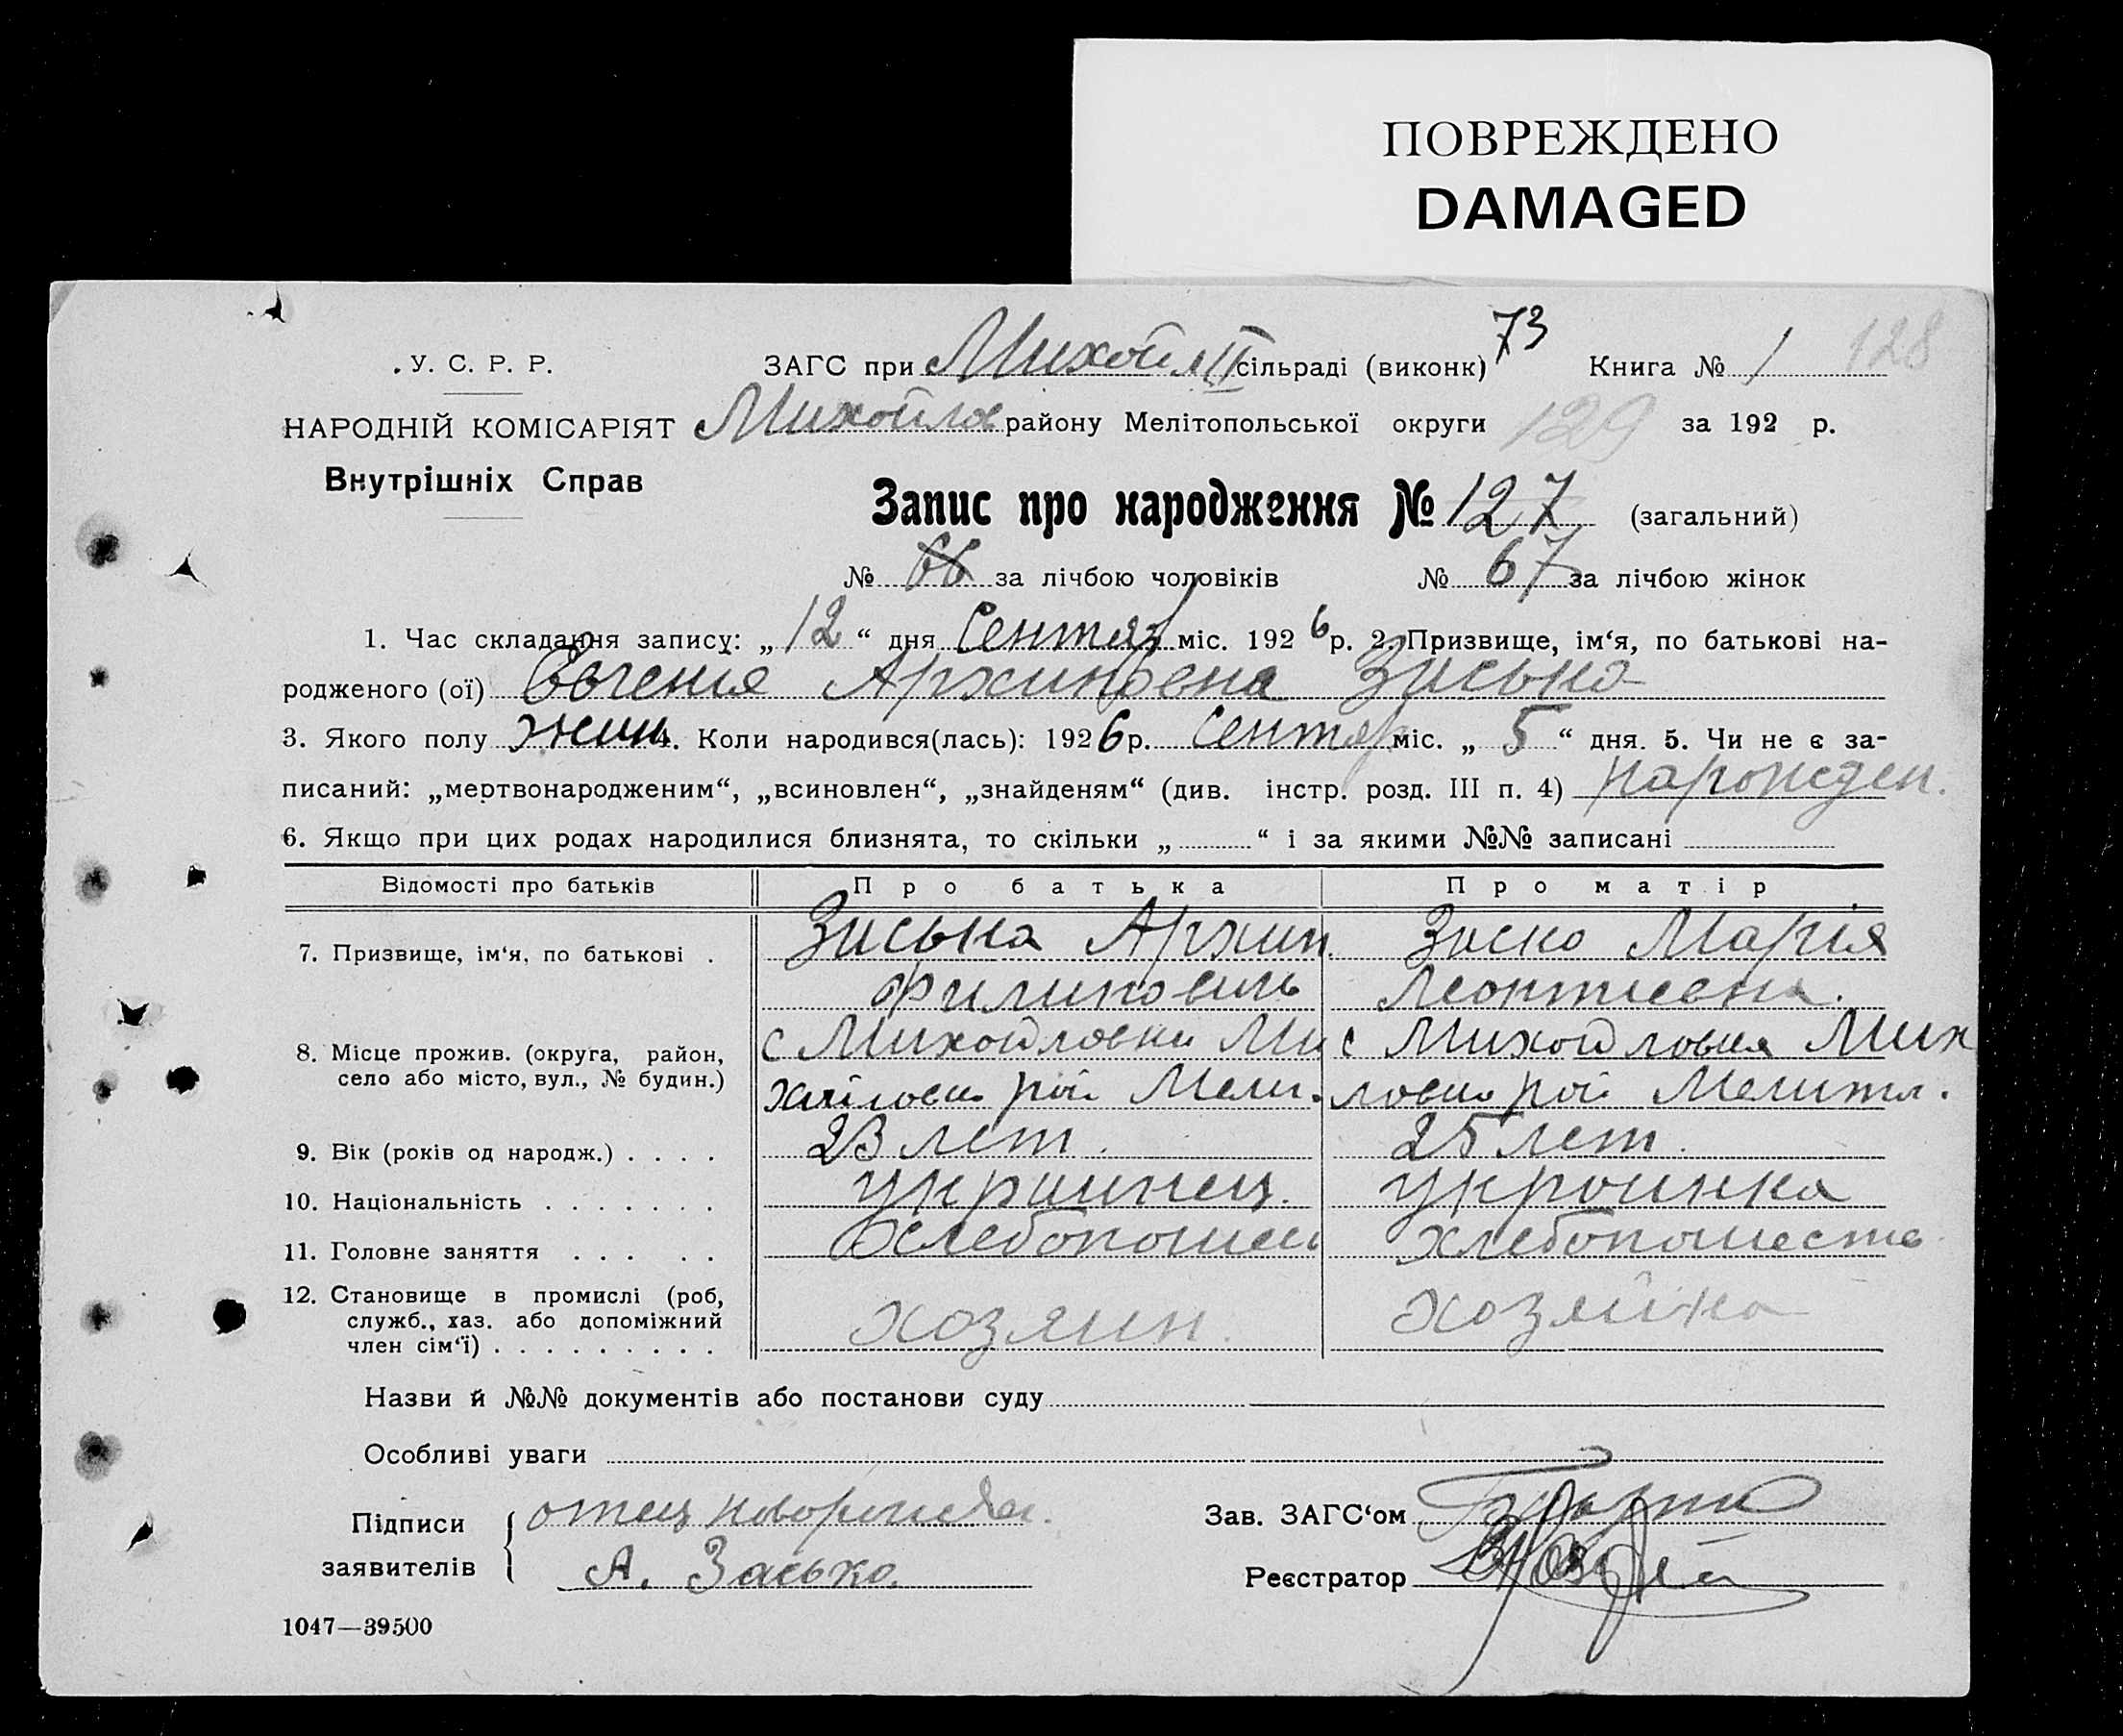 ПОВРЕЖДЕНО
DAMAGED
У. С. Р. Р.
ЗАГС при Михойл II сільраді (виконк) 73 Книга № 1 128
НАРОДНІЙ КОМІСАРІЯТ Михойлов району Мелітопольської округи 129 за 192 р.
Внутрішніх Справ
Запис про народження № 127 (загальний)
№ 66 за лічбою чоловіків № 67 за лічбою жінок
1. Час складання запису: „12“ дня Сентяб міс. 1926 р. 2. Призвище, ім‘я, по батькові на-
родженого (ої) Евгения Архиповна Зисько
3. Якого полу жен. 4. Коли народився(лась): 1926 р. Сентяб міс. „5“ дня. 5. Чи не є за-
писаний: „мертвонародженим“, „всиновлен“, „знайденям“ (див. інстр. розд. III п. 4) нарожден.
6. Якщо при цих родах народилися близнята, то скільки „ “ і за якими №№ записані
Відомості про батьків Про батька Про матір
7. Призвище, ім‘я, по батькові . Зисько Архип. Зиско Марія
Филиповичь Леонтиевна.
8. Місце прожив. (округа, район, с Михойловки Ми с Михойловка Мих
село або місто, вул., № будин.) хайловс рай Мели. ловс рай Мелитп.
9. Вік (років од народж.) . . . . 23 лет. 25 лет.
10. Національність . . . . . . . украинец. украинка
11. Головне заняття . . . . . Хлебопашец хлебопашество
12. Становище в промислі (роб, хозяин. хозяйка
служб., хаз. або допоміжний
член сім‘ї) . . . . . . . . .
Назви й №№ документів або постанови суду
Особливі уваги
Підписи отец Зав. ЗАГС‘ом
заявителів А. Засько. Реєстратор
1047—39500